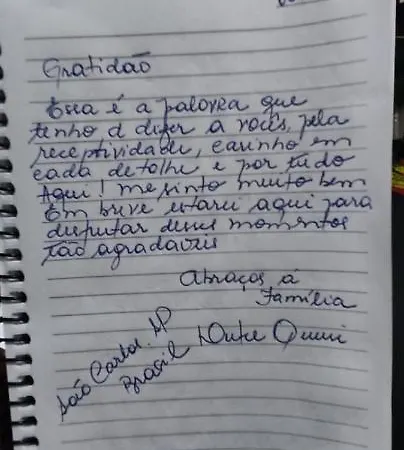 Gratidão
Essa é a palavra que
tenho d dizer a vocês, pela
receptividade, carinho em
cada detalhe e por tudo
Aqui! me sinto muito bem
Em breve estarei aqui para
disfrutar desses momentos
tão agradaveis
Abraços á
Família
São Carlos. SP
Brasil